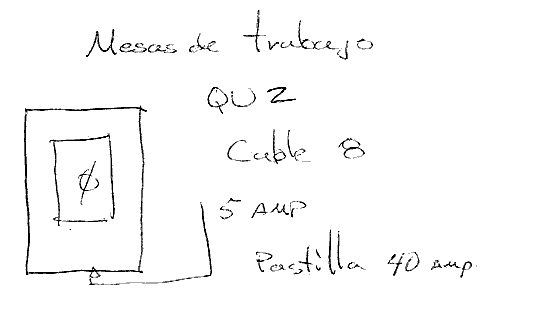 Mesas de trabajo
QU 2
Cable 8
5 AMP
Pastilla 40 amp.